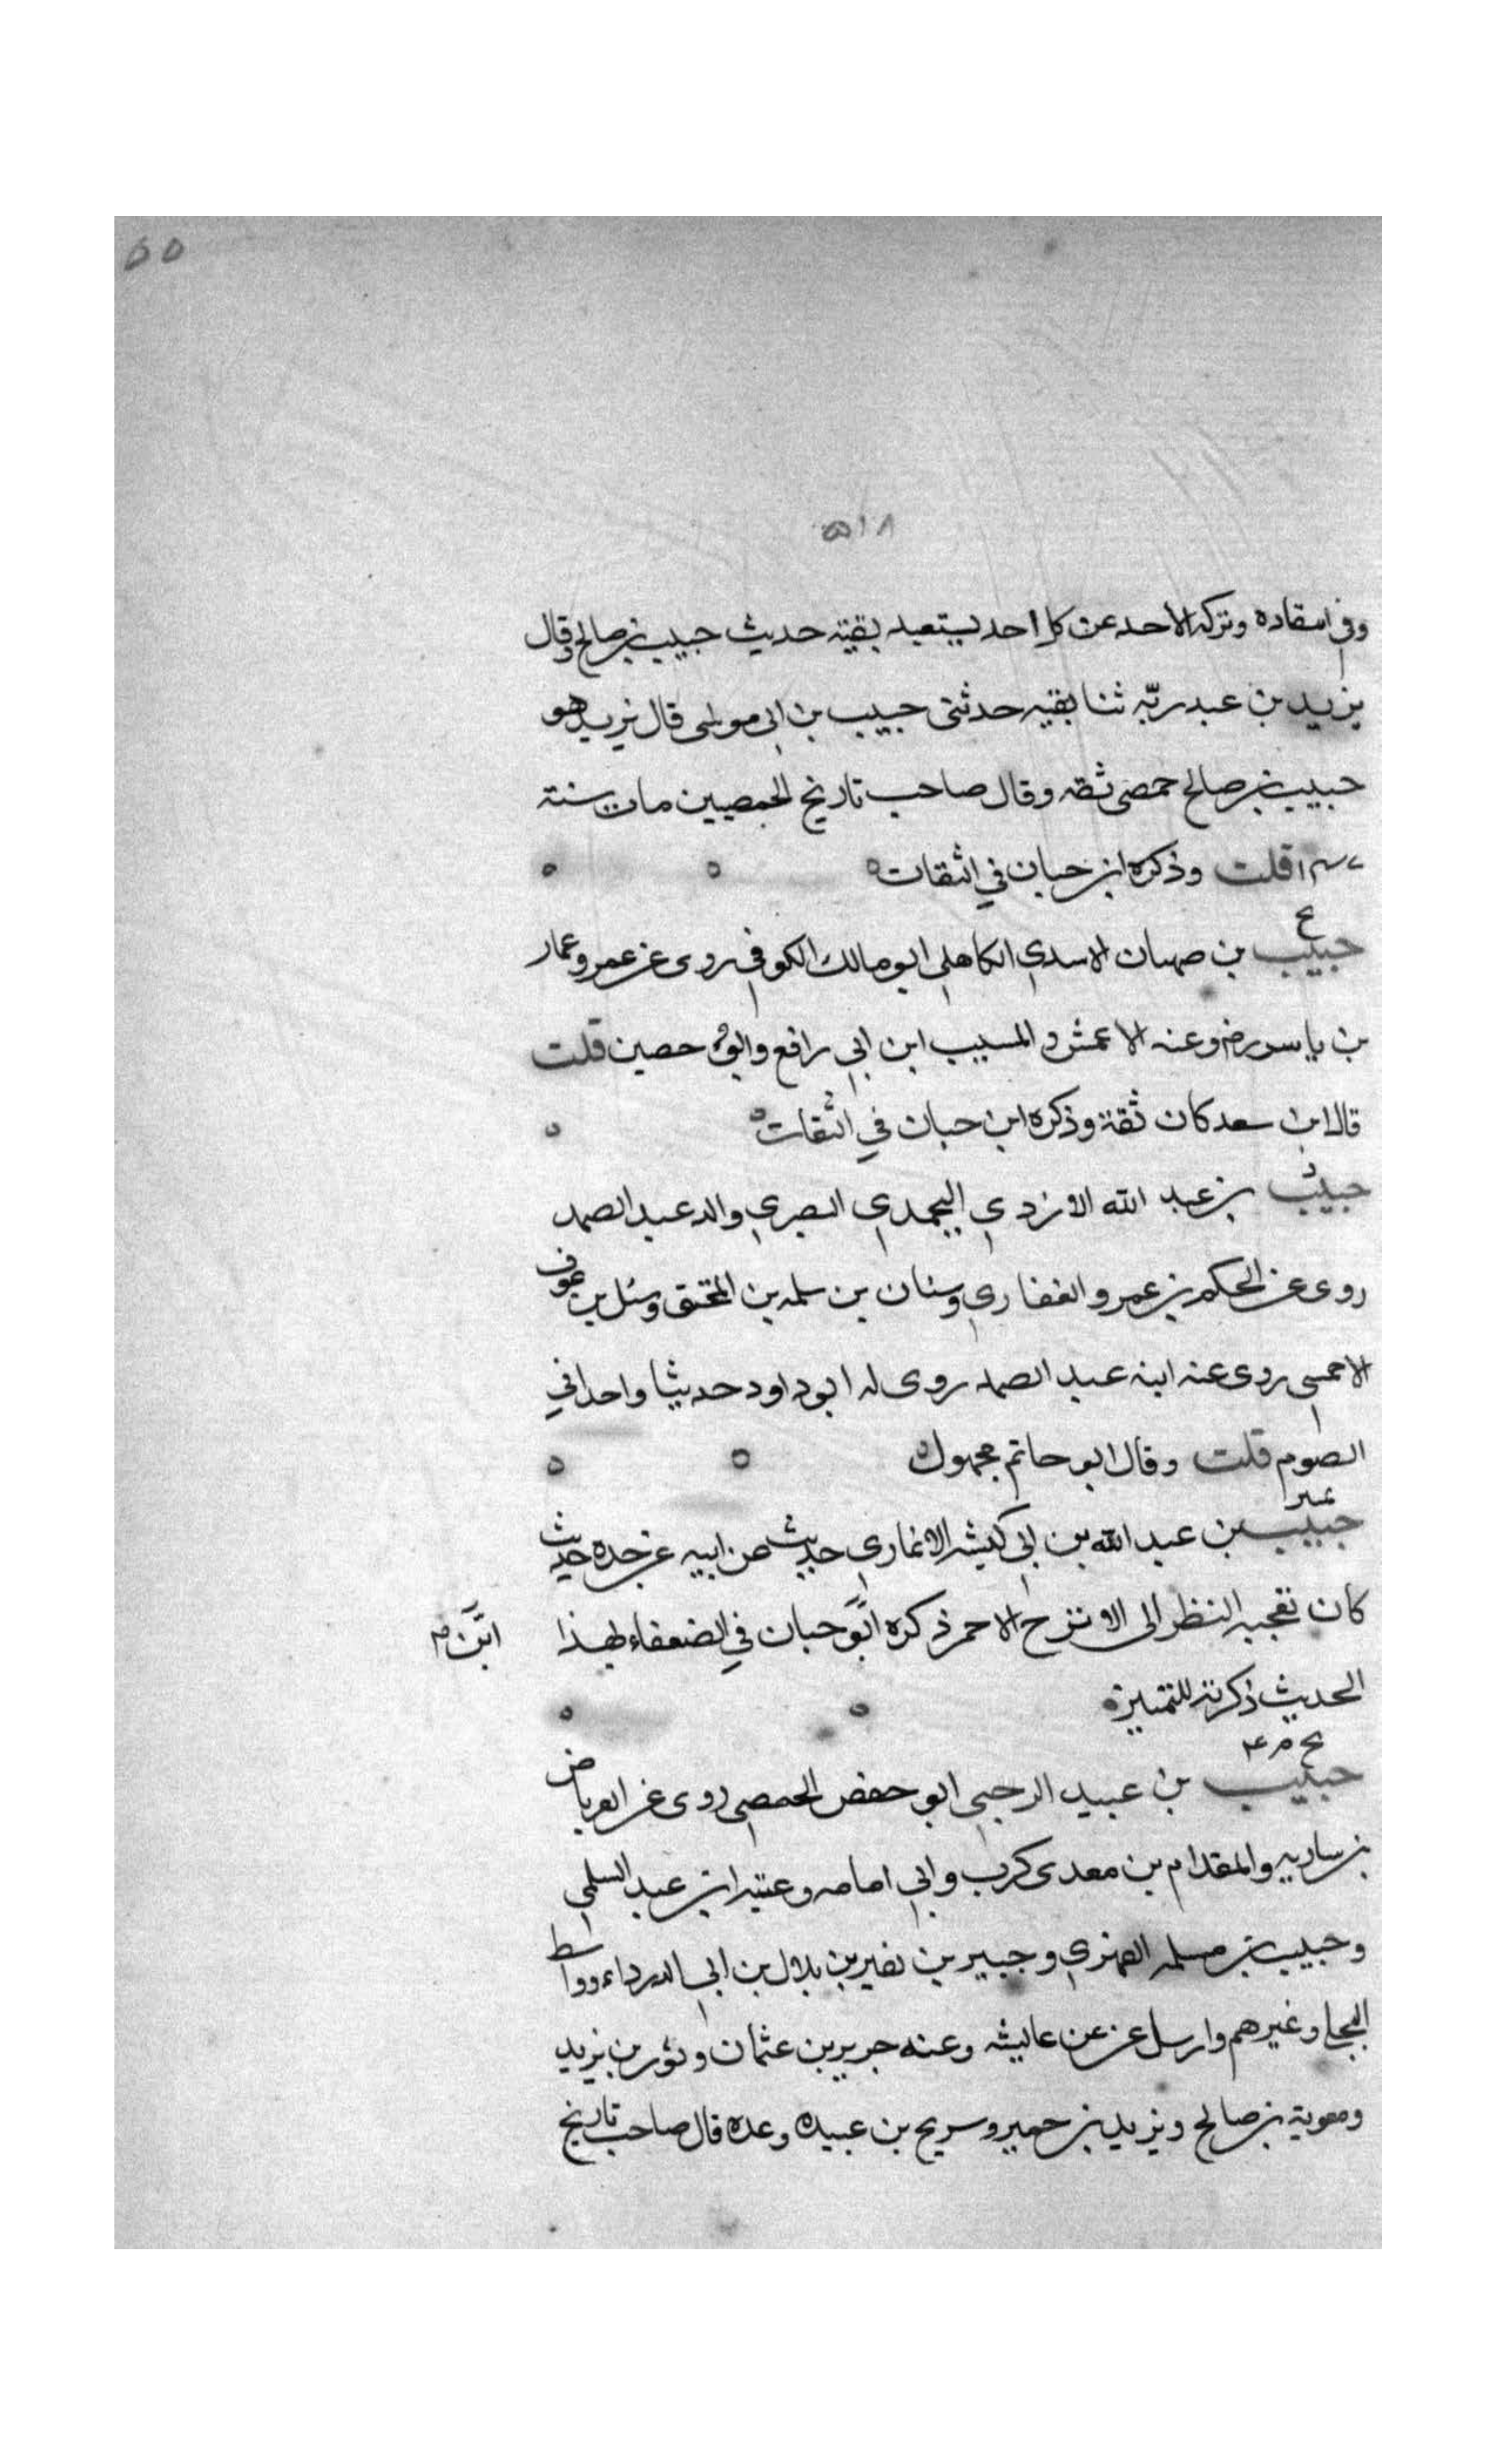 ٥٥
٥١٨
وفي اسقاده وتركه الاحد عن كل احد يستعيد بقيته حديث حبيب بن صالح وقال
يزيد بن عبد ربّه ثنا بقيه حدثنى حبيب بن ابى موسى قال يزيد هو
حبيب بن صالح حمصى ثقه وقال صاحب تاريخ الحمصيين مات سنته
١٤٧ قلت وذكره ابن حبان في الثقات
بخ
حبيب بن صهبان الاسدي الكاهلي ابو مالك الكوفي روى عن عمر وعمار
بن ياسر رض وعنه الاعمش و المسيب ابن ابي رافع وابو حصين قلت
قال ابن سعد كان ثقة وذكره ابن حبان في الثقات
د
حبيب بن عبد الله الازدي اليحمدي البصري والد عبد الصمد
روى عن الحكم بن عمرو الغفاري وسنان بن سلمه بن المحبق وشبل بن عوف
الاحمسي روى عنه ابنه عبد الصمد روى له ابو داود حديثا واحدا في
الصوم قلت وقال ابو حاتم مجهول
تمييز
حبيب بن عبد الله بن ابي كبشه الانماري حديث عن ابيه عن جده حديث
كان تعجبه النظر الى الاتنرج الاحمر ذكره ابو حبان في الضعفاء لهذا
ابن م
الحديث ذكرته للتمييز
بخ م ٤
حبيب بن عبيد الرحبي ابو حفض الحمصي روى عن العرباض
بن ساريه والمقدام بن معدى كرب وابي امامه وعتبه ابن عبد السلمي
وحبيب بن مسلمه الفهري وجبير بن نفير بن بلال بن ابي الدرداء وواسط
البجلي وغيرهم وارسل عن عن عايشه وعنه جرير بن عثمان وثور بن يزيد
ومعوية بن صالح ويزيد بن حمير وسريح بن عبيده وعده قال صاحب تاريخ